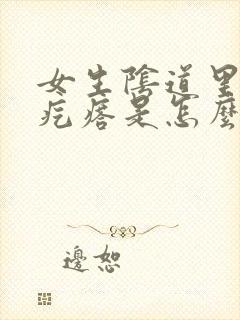 女生陰道里
疙瘩是怎麼
邊恕